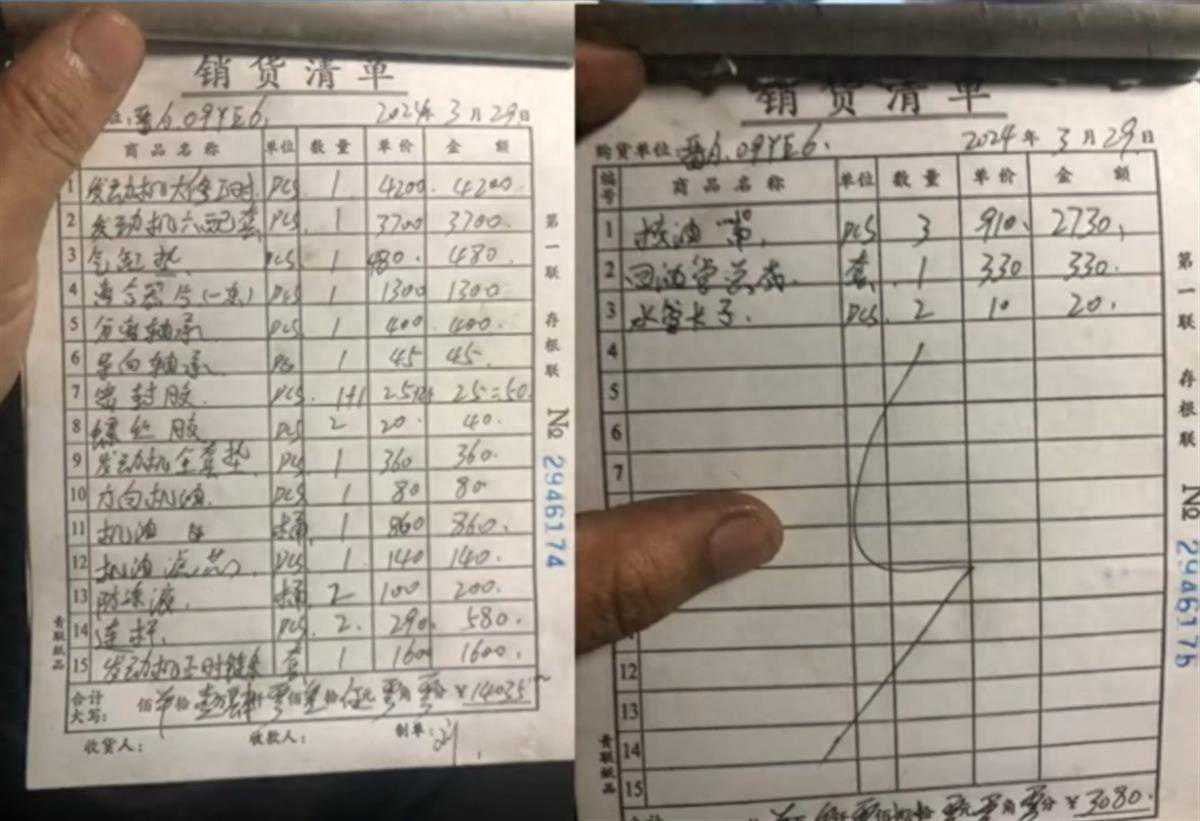 销货清单
晋A.09YE6. 2024年 3月29日
商品名称 单位 数量 单价 金额
1 发动机大修工时 PCS 1 4200. 4200
2 发动机六配套 PCS 1 3700 3700.
3 气缸垫 PCS 1 480. 480.
4 离合器片(一套) PCS 1 1300 1300
5 分离轴承 PCS 1 400. 400.
6 导向轴承 PCS 1 45 45.
7 密封胶 PCS. 1+1 25 25=50.
8 螺丝胶 PCS 2 20. 40.
9 发动机全套垫 PCS 1 360 360.
10 方向机油 PCS 1 80 80
11 机油 桶 1 860 860.
12 机油滤芯 PCS 1 140 140.
13 防冻液 桶 2 100 200.
14 连杆 PCS. 2. 290. 580.
15 发动机正时链条 套 1 1600 1600.
合计
大写: 佰 拾 万 仟 零佰 拾伍元零角零分 ¥14035
收货人: 收款人: 制单:
第一联 存根联 № 2946174
青联纸品
销货清单
购货单位 晋A.09YE6. 2024年 3月29日
编号 商品名称 单位 数量 单价 金额
1 油 PCS 3 910. 2730.
2 回油管总成. 套. 1 330 330.
3 水管卡子. PCS. 2 10 20.
4
5
6
7
12
13
14
15
零元零角零分 ¥3080.
第一联 存根联 № 2946175
青联纸品